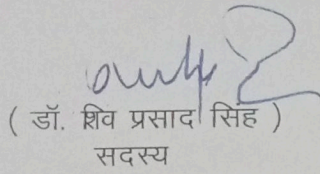 ( डॉ. शिव प्रसाद सिंह )
सदस्य